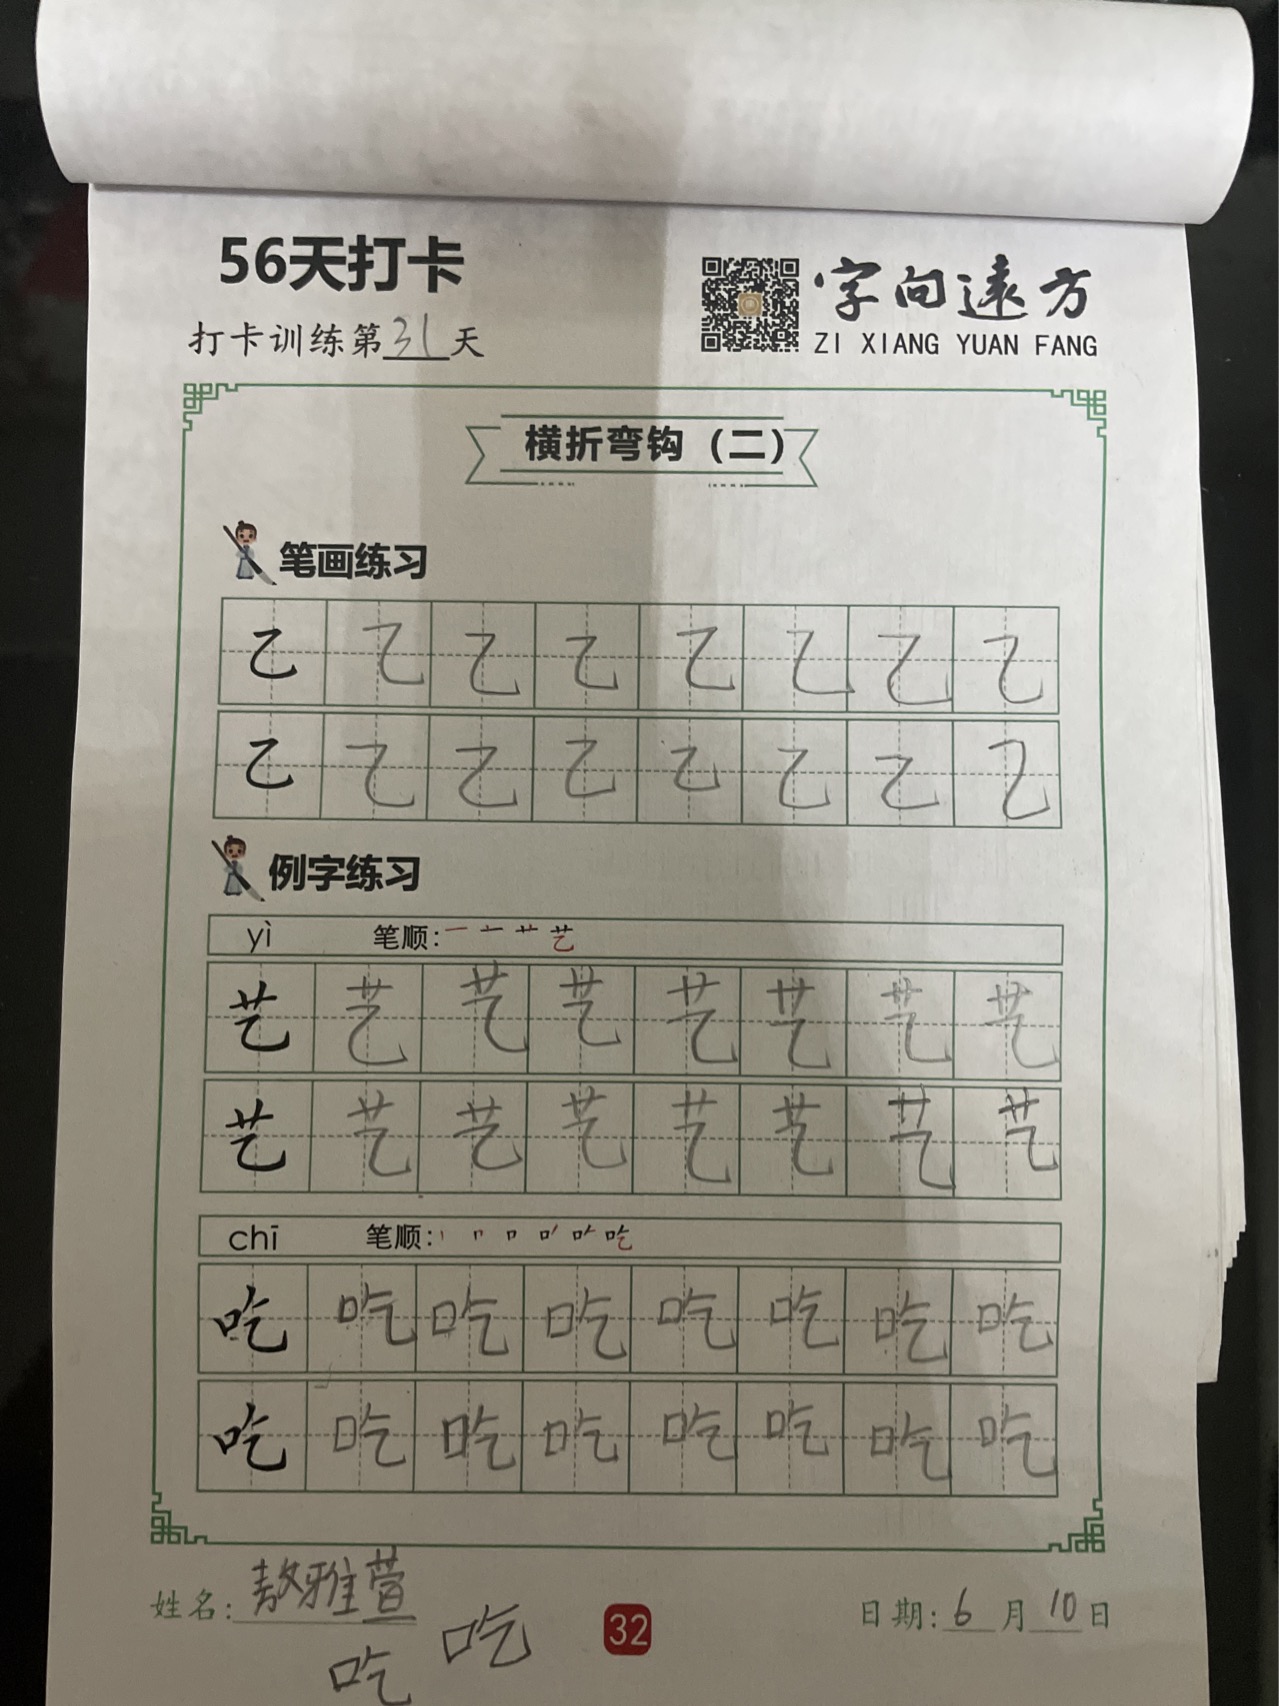 56天打卡
打卡训练第31天
字向遠方
ZI XIANG YUAN FANG
横折弯钩（二）
笔画练习
乙 乙 乙 乙 乙 乙 乙 乙
乙 乙 乙 乙 乙 乙 乙 乙
例字练习
yì 笔顺: 艺
艺 艺 艺 艺 艺 艺 艺 艺
艺 艺 艺 艺 艺 艺 艺 艺
chī 笔顺: 吃
吃 吃 吃 吃 吃 吃 吃 吃
吃 吃 吃 吃 吃 吃 吃 吃
姓名: 敖雅萱
32
日期: 6月10日
吃 吃